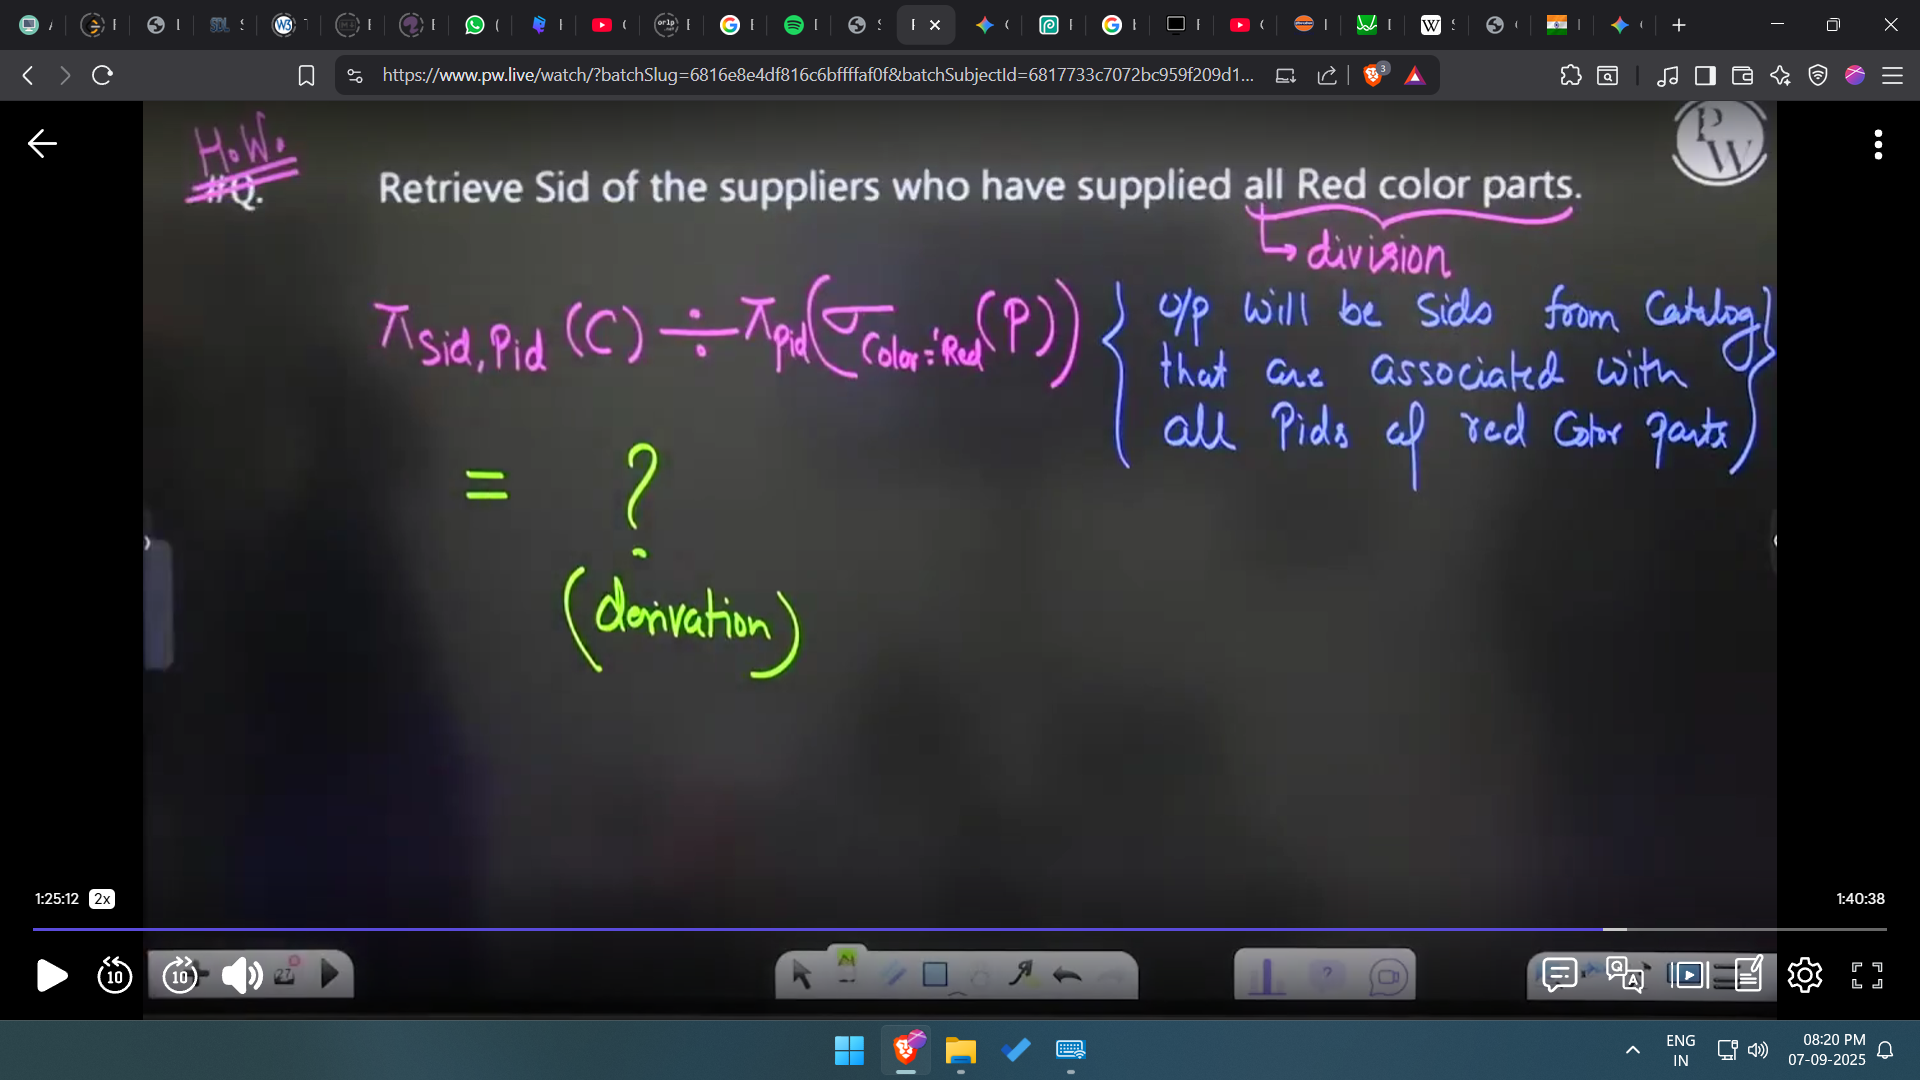 https://www.pw.live/watch/?batchSlug=6816e8e4df816c6bffffaf0f&batchSubjectId=6817733c7072bc959f209d1...
3
H.W.
#Q. Retrieve Sid of the suppliers who have supplied all Red color parts.
PW
division
π Sid, Pid (C) ÷ π Pid (σ Color='Red (P))
{ o/p will be Sids from Catalog
that are associated with
all Pids of red Color parts }
= ?
(derivation)
1:25:12 2x 1:40:38
10 10 27
ENG
IN
08:20 PM
07-09-2025